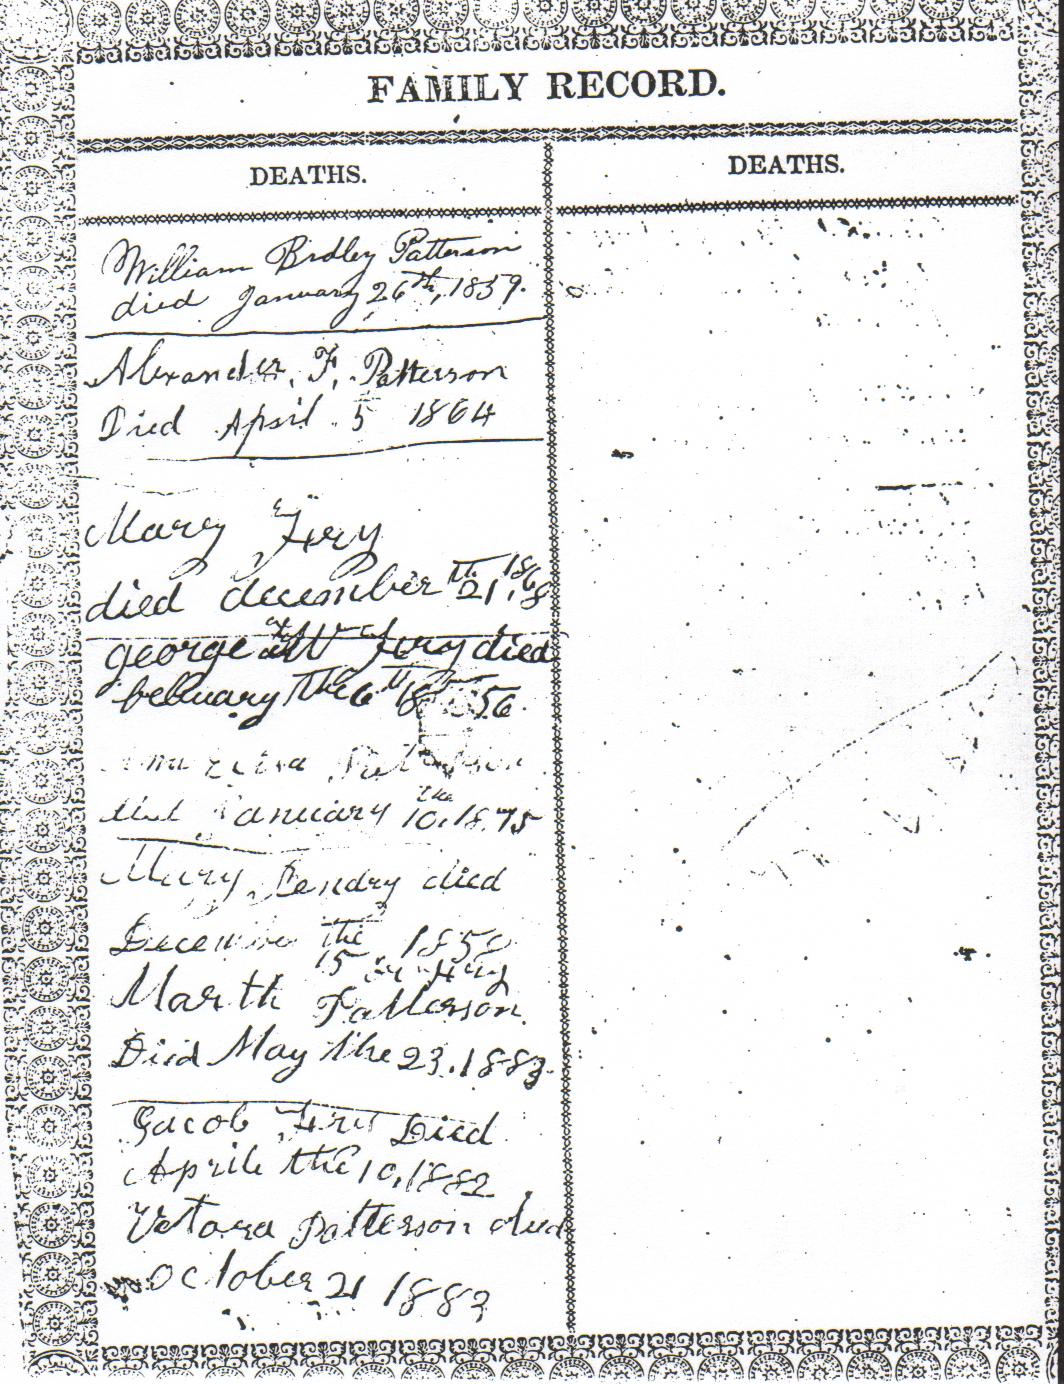 FAMILY RECORD.
DEATHS.
William Bridley Patterson
died January 26th, 1859.
Alexander. F. Patterson
Died April 5 1864
Mary Fery
died december th 21, 1868
george W fery died
febuary the 6th 1856
January the 10, 1875
Mary Fendry died
December the 185
15
Marth Patterson
Died May the 23. 1883.
Jacob Fry Died
Aprile the 10, 1882
Vetora Patterson died
october 21 1883
DEATHS.